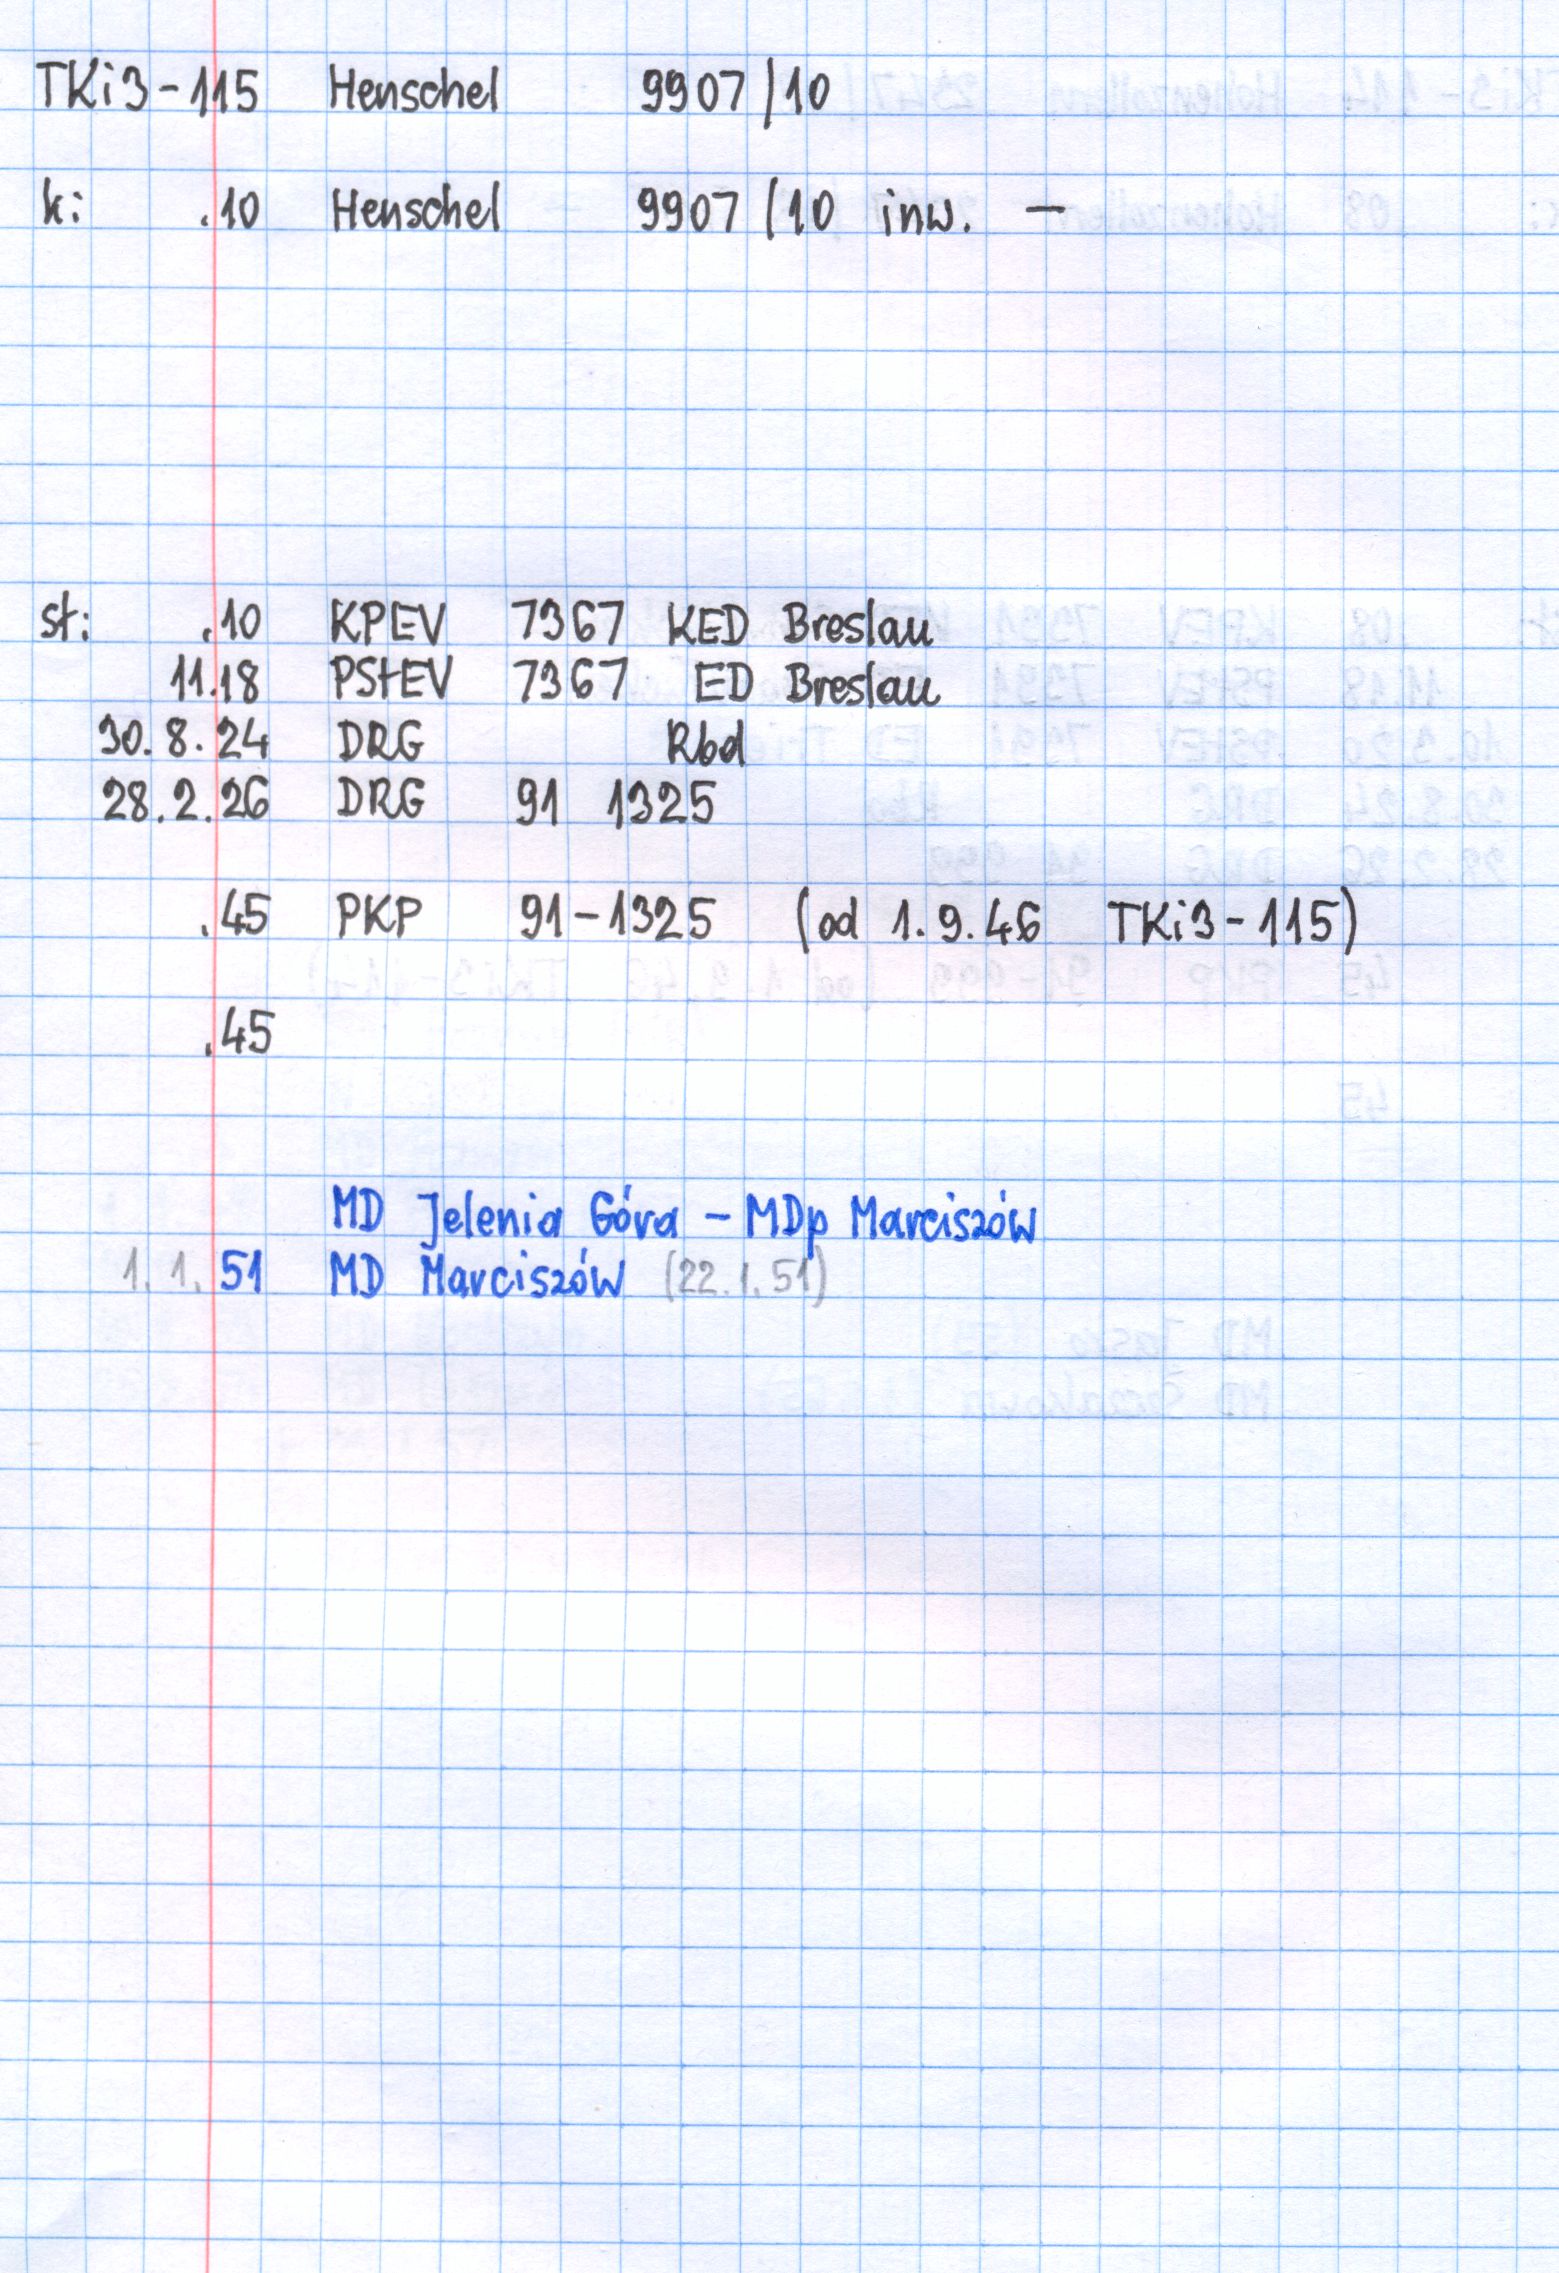 TKi3-115 Henschel 9907/10
k: .10 Henschel 9907/10 inw. –
st: .10 KPEV 7367 KED Breslau
11.18 PStEV 7367 ED Breslau
30.8.24 DRG Rbd
28.2.26 DRG 91 1325
.45 PKP 91-1325 (od 1.9.46 TKi3-115)
.45
MD Jelenia Góra – MDp Marciszów
1.1.51 MD Marciszów (22.1.51)